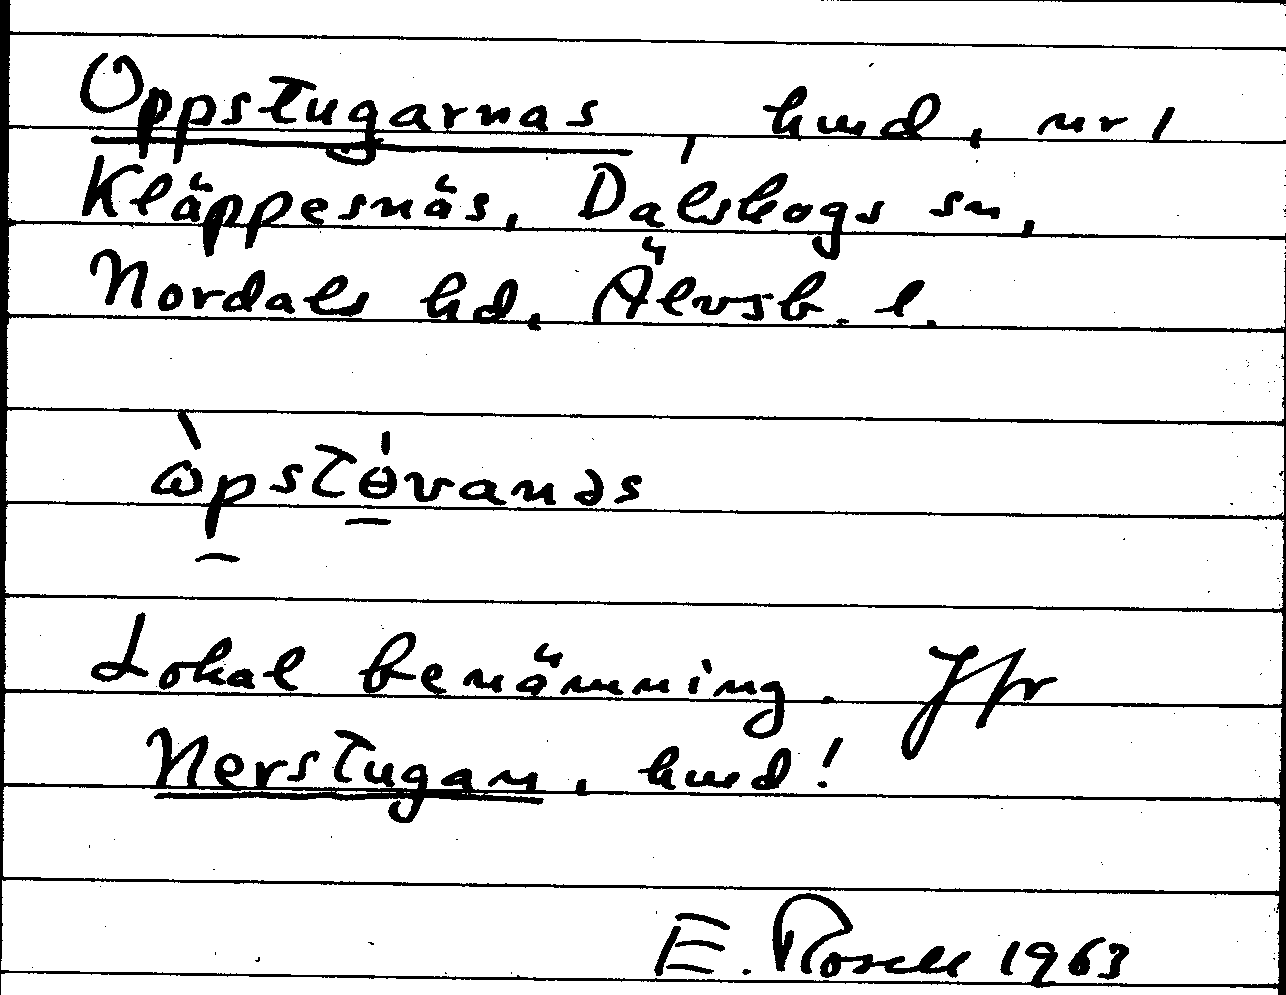 Oppstugarnas, hmd, nr 1
Kläppesnäs, Dalskogs sn,
Nordals hd, Älvsb. l.
ὼpstɵ́vanəs
Lokal benämning. Jfr
Nerstugan, hmd!
E. Rosell 1963